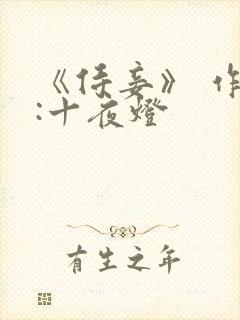 《侍妾》 作
:十夜燈
有生之年